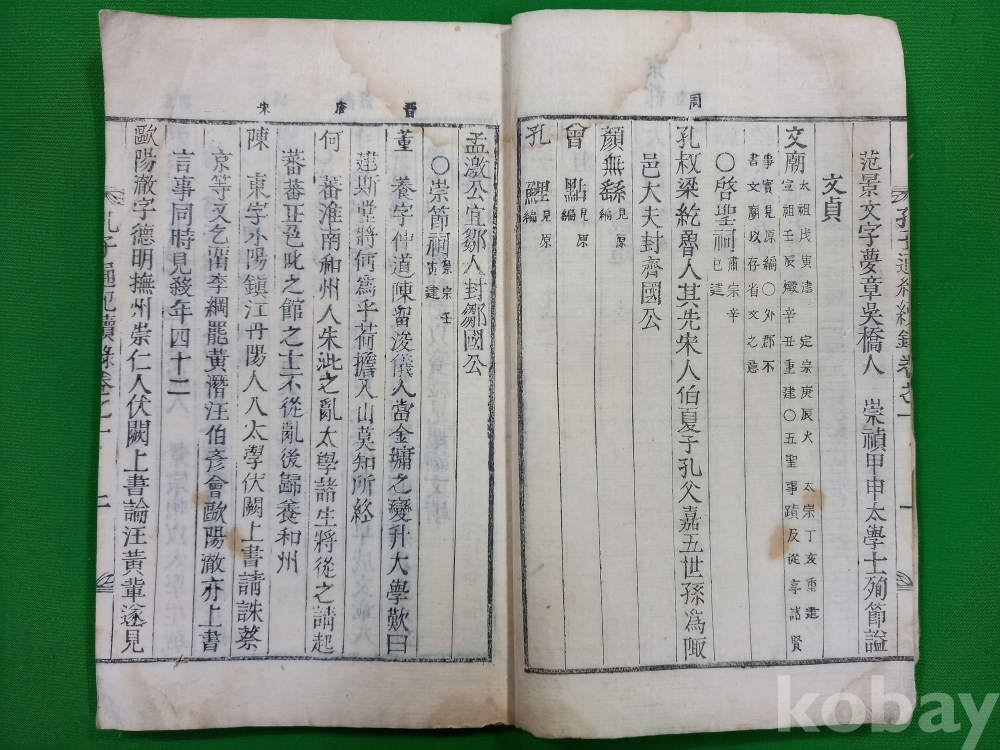 周
孔子通紀續錄卷之一
一
范景文字夢章吳橋人 崇禎甲申太學士殉節謚
文貞
文廟 太祖戊寅建 定宗庚辰火 太宗丁亥重建
宣祖壬辰燬辛丑重建〇五聖事蹟及從享諸賢
事實見原編〇外郡不
書文廟以存省文之意
〇啓聖祠 肅宗辛
巳建
孔叔梁紇魯人其先宋人伯夏子孔父嘉五世孫爲陬
邑大夫封齊國公
顏無繇 見原
編
曾點 見原
編
孔鯉 見原
編
晋 唐 宋
孟激公宜鄒人封鄒國公
〇崇節祠 肅宗壬
寅建
董 養字仲道陳留浚儀人當金墉之變升大學歎曰
建斯堂將何爲乎荷擔入山莫知所終
何 蕃淮南和州人朱泚之亂太學諸生將從之請起
蕃蕃正色叱之館之士不從亂後歸養和州
陳 東字少陽鎮江丹陽人入太學伏闕上書請誅蔡
京等又乞留李綱罷黃潛汪伯彥會歐陽澈亦上書
言事同時見殺年四十二
歐陽澈字德明撫州崇仁人伏闕上書論汪黃輩遂見
孔子通紀續錄卷之一
二
kobay